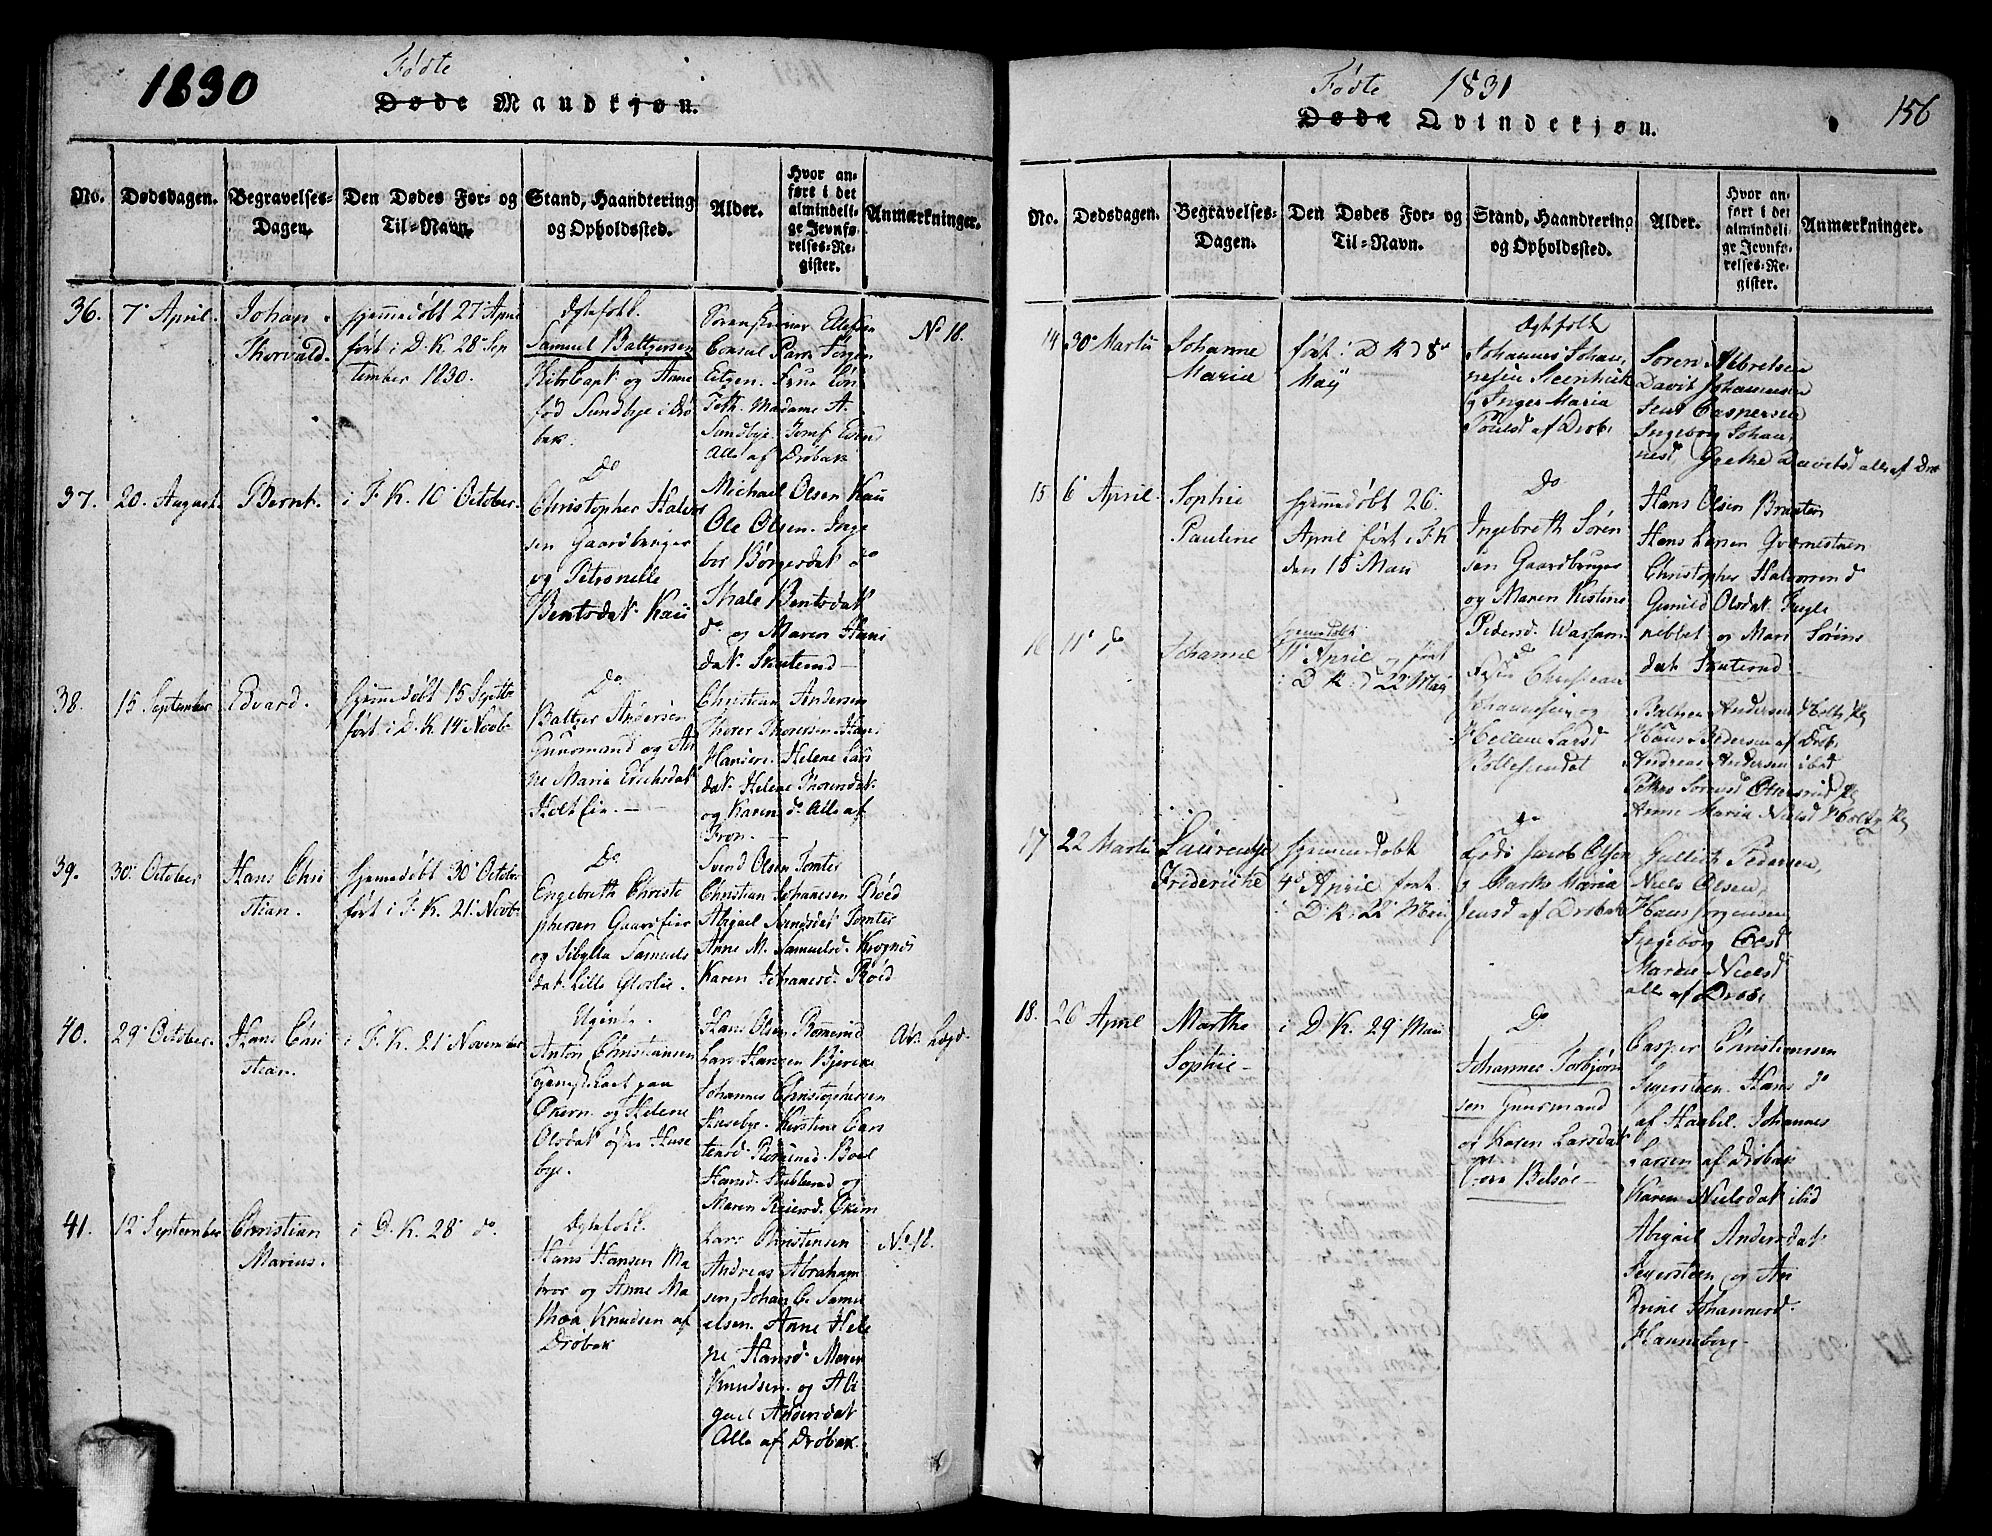 1830
Fødte
Døde Mandkjøn.
No.
Dødsdagen.
Begravelses-
Dagen.
Den Dødes For- og
Til-Navn.
Stand, Haandtering
og Opholdssted.
Alder.
Hvor an-
ført i det
almindeli-
ge Jevnfø-
relses-Re-
gister.
Anmærkninger.
36.
7 April.
Johan
Thorvald.
hjemmedøbt 27 Apr
ført i D. K. 28 Sep
tember 1830.
Ægtefolk.
Samuel Baltzersen
og Anne
fød Sundbye i Drø
bak.
Sorenskriver
Consul Parr
Madame A.
Sundbye.
Alle af Drøbak
No 18.
37.
20. August.
Bernt.
i F. K. 10 October.
Do
Christopher Halvor
sen Gaardbruger
og Petronelle
Bentsdat.
Michael Olsen
Ole Olsen. Inge
bor Børgersdat
Thale Bentsdat
do og Maren Hans
dat. Skuterud
38.
15 September
Edvard.
hjemmedøbt 15 Septb
ført i D. K 14 Novb
Do
Baltzer Andersen
Huusmand og An
ne Maria Erichsdat
Christian Andersen
Thorer Thoresen. Han
Hansen. Helene Lars
dat. Helene Thorersdat
og Karen do. Alle af
Fron.
39.
30 October
Hans Chri
stian.
hjemmedøbt 30 Octobr
ført i F. K. 21 Novb
Do
Engebreth Christo
phersen Gaardeier
og Sibylla Samuels
dat. Lille Glørlie.
Svend Olsen Tomter
Christian Johannesen Røed
Abigael Svendsdat Tomter
Anne M. Samuelsd. Krognes
Karen Johannesd. Røed
40.
29 October.
Hans Chri
stian.
i F. K. 21 November
Ugivte.
Anton Christiansen
paa
Økern. og Helene
Olsdat øfre Huse
bye.
Hans Olsen Romerud
Lars Hansen Bjerike
Johannes Christophersen
Husebye. Kirstine Cars
tensd. Romerud. Boel
Hansd. Stublerud og
Maren Reiersd. Økern
41.
12 September
Christian
Marius.
i D. K. 28 do.
Ægtefolk.
Hans Hansen Ma
tros og Anne Ma
thea Knudsen af
Drøbak
Lars Christensen
Andreas Abraham
sen, Johan C. Samu
elsen. Anne Hele
ne Hansd. Maren
Knudsen. og Abi
gael Andersdat
Alle af Drøbak.
No 18.
Fødte 1831
156
Døde Qvindekjøn.
No.
Dødsdagen.
Begravelses-
Dagen.
Den Dødes For- og
Til-Navn.
Stand, Haandtering
og Opholdssted.
Alder.
Hvor an-
ført i det
almindeli-
ge Jevnfø-
relses-Re-
gister.
Anmærkninger.
14
30 Martii
Johanne
Maria
ført i D K d 8de
Maij
Ægtefolk
Johannes Johan
nesen Steenhuk
og Inger Maria
Poulsd af Drøb.
Søren Albretsen
Davit Johannesen
Jens Caspersen
Ingeborg Johan
nesd, Grethe Davitsd alle af Drø
15
6 April.
Sophie
Pauline
hjemmedøbt 26.
April ført i F K
den 15 Mai
Do
Ingebreth Søren
sen Gaardbruger
og Maren Kistine
Pedersd.
Hans Olsen Braaten
Hans Larsen
Christopher Halvorsen
Gunild Olsdat. Fugle
nebbet og Mari Sørens
dat Skuterud
16
11 do
Johanne
hjemmedøbt
11 April og ført
i D K d 22 Maij
Do
Christian
Johannesen og
Hellene Larsd
Baltzer Andersen
Hans Pedersen af Drøb.
Andreas Andersen ibid
Anne Maria Nielsd
17
22 Martii
Laurentse
Friderikke
hjemmedøbt
4de April ført
i D. K. 22 Mai
do
Jacob Olsen
og Marthe Maria
Jensd af Drøbak
Pedersen,
Niels Olsen,
Hans Jørgensen,
Ingeborg Olesd
Marthe Nielsd
alle af Drøb.
18.
26 April
Marthe
Sophie
i D K. 29 Mai
Do
Johannes Torbjørn
sen Huusmand
og Karen Larsdat
Belsøe
Casper Christianssen
Segersteen. Hans do
af Haabel. Johannes
Larsen af Drøbak
Karen Nielsdat ibid
Abigael Andersdat
Segersteen og An
drine Johannesd.
Hanneborg